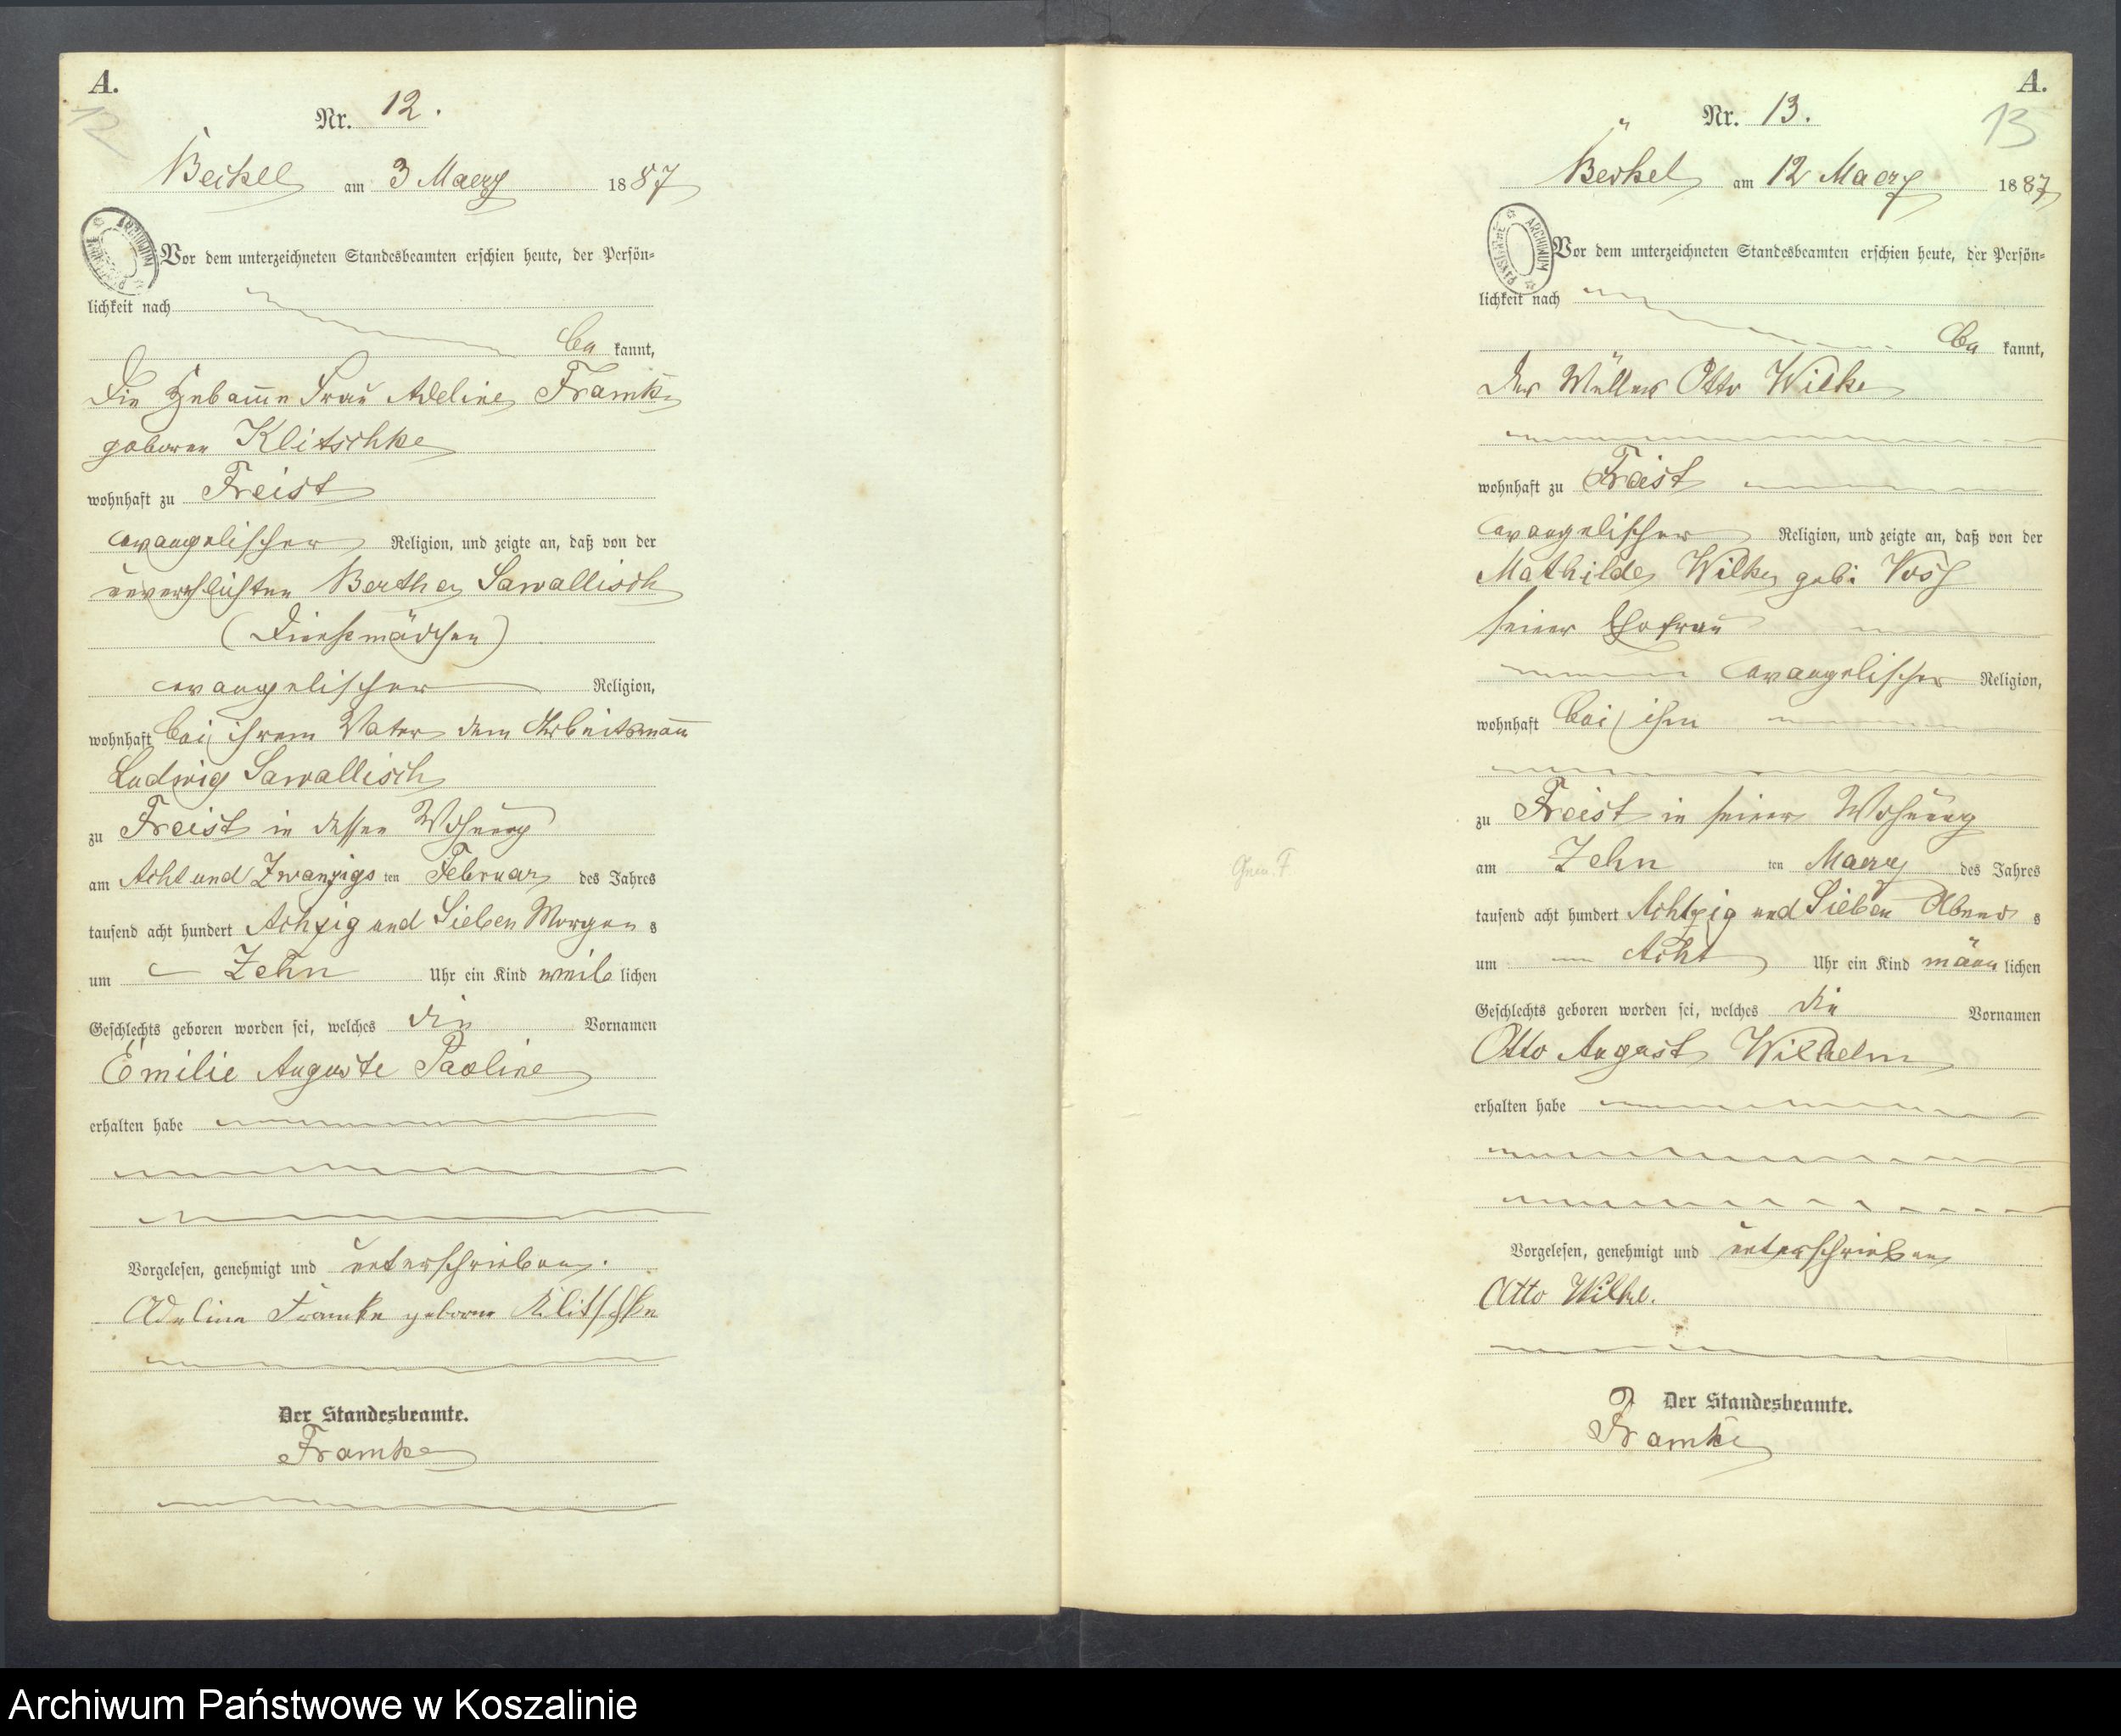 A.
12
Nr. 12.
Beckel am 3 Maerz 1887
Vor dem unterzeichneten Standesbeamten erschien heute, der Persön-
lichkeit nach
be kannt,
die Hebamme Frau Adeline Framke
geborene Klitschke
wohnhaft zu Freist
evangelischer Religion, und zeigte an, daß von der
unverehlichten Bertha Sawallisch
(Dienstmädchen)
evangelischer Religion,
wohnhaft bei ihrem Vater dem Arbeitsmann
Ludwig Sawallisch
zu Freist in dessen Wohnung
am Acht und Zwanzigs ten Februar des Jahres
tausend acht hundert Achzig und Sieben Morgen s
um Zehn Uhr ein Kind weib lichen
Geschlechts geboren worden sei, welches die Vornamen
Emilie Auguste Pauline
erhalten habe
Vorgelesen, genehmigt und unterschrieben.
Adeline Framke geborne Klitschke
Der Standesbeamte.
Framke
A.
13
Nr. 13.
Beckel am 12 Maerz 1887
ARCHIWUM
Vor dem unterzeichneten Standesbeamten erschien heute, der Persön-
lichkeit nach
be kannt,
der Müller Otto Wilke
wohnhaft zu Freist
evangelischer Religion, und zeigte an, daß von der
Mathilde Wilke geb: Voß
seiner Ehefrau
evangelischer Religion,
wohnhaft bei ihm
zu Freist in seiner Wohnung
am Zehn ten Maerz des Jahres
tausend acht hundert Achtzig und Sieben Abend s
um Acht Uhr ein Kind männ lichen
Geschlechts geboren worden sei, welches die Vornamen
Otto August Wilhelm
erhalten habe
Vorgelesen, genehmigt und unterschrieben
Otto Wilke.
Der Standesbeamte.
Framke
Archiwum Państwowe w Koszalinie